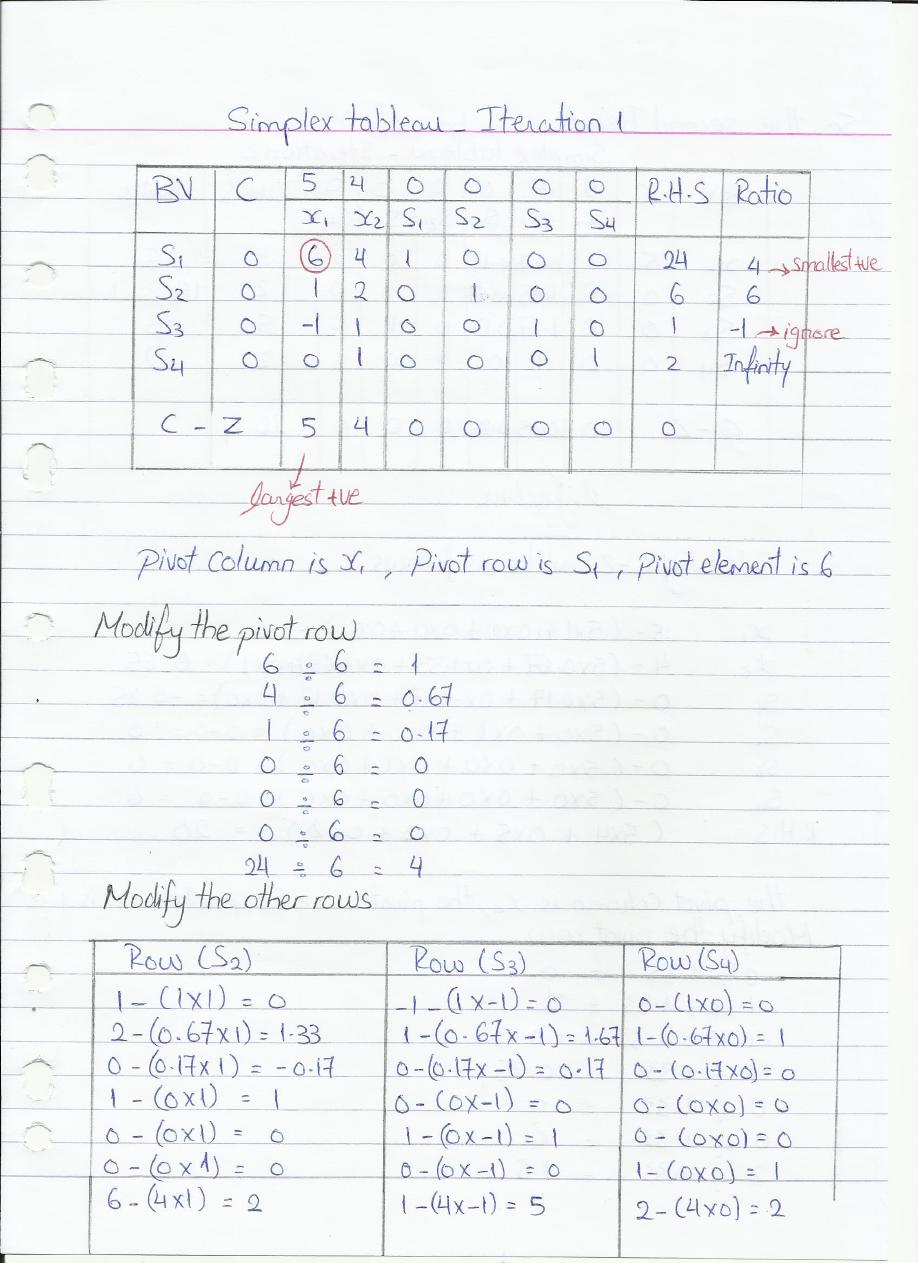 Simplex tableau - Iteration 1
BV C 5 4 0 0 0 0 R.H.S Ratio
x₁ x₂ S₁ S₂ S₃ S₄
S₁ 0 6 4 1 0 0 0 24 4 → smallest +ve
S₂ 0 1 2 0 1 0 0 6 6
S₃ 0 -1 1 0 0 1 0 1 -1 → ignore
S4 0 0 1 0 0 0 1 2 Infinity
C - Z 5 4 0 0 0 0 0
largest +ve
Pivot Column is x₁, Pivot row is S₁, Pivot element is 6
Modify the pivot row
6 ÷ 6 = 1
4 ÷ 6 = 0.67
1 ÷ 6 = 0.17
0 ÷ 6 = 0
0 ÷ 6 = 0
0 ÷ 6 = 0
24 ÷ 6 = 4
Modify the other rows
Row (S₂) Row (S₃) Row (S₄)
1-(1x1) = 0 -1-(1x-1) = 0 0-(1x0) = 0
2-(0.67x1) = 1.33 1-(0.67x-1) = 1.67 1-(0.67x0) = 1
0-(0.17x1) = -0.17 0-(0.17x-1) = 0.17 0-(0.17x0) = 0
1-(0x1) = 1 0-(0x-1) = 0 0-(0x0) = 0
0-(0x1) = 0 1-(0x-1) = 1 0-(0x0) = 0
0-(0x1) = 0 0-(0x-1) = 0 1-(0x0) = 1
6-(4x1) = 2 1-(4x-1) = 5 2-(4x0) = 2